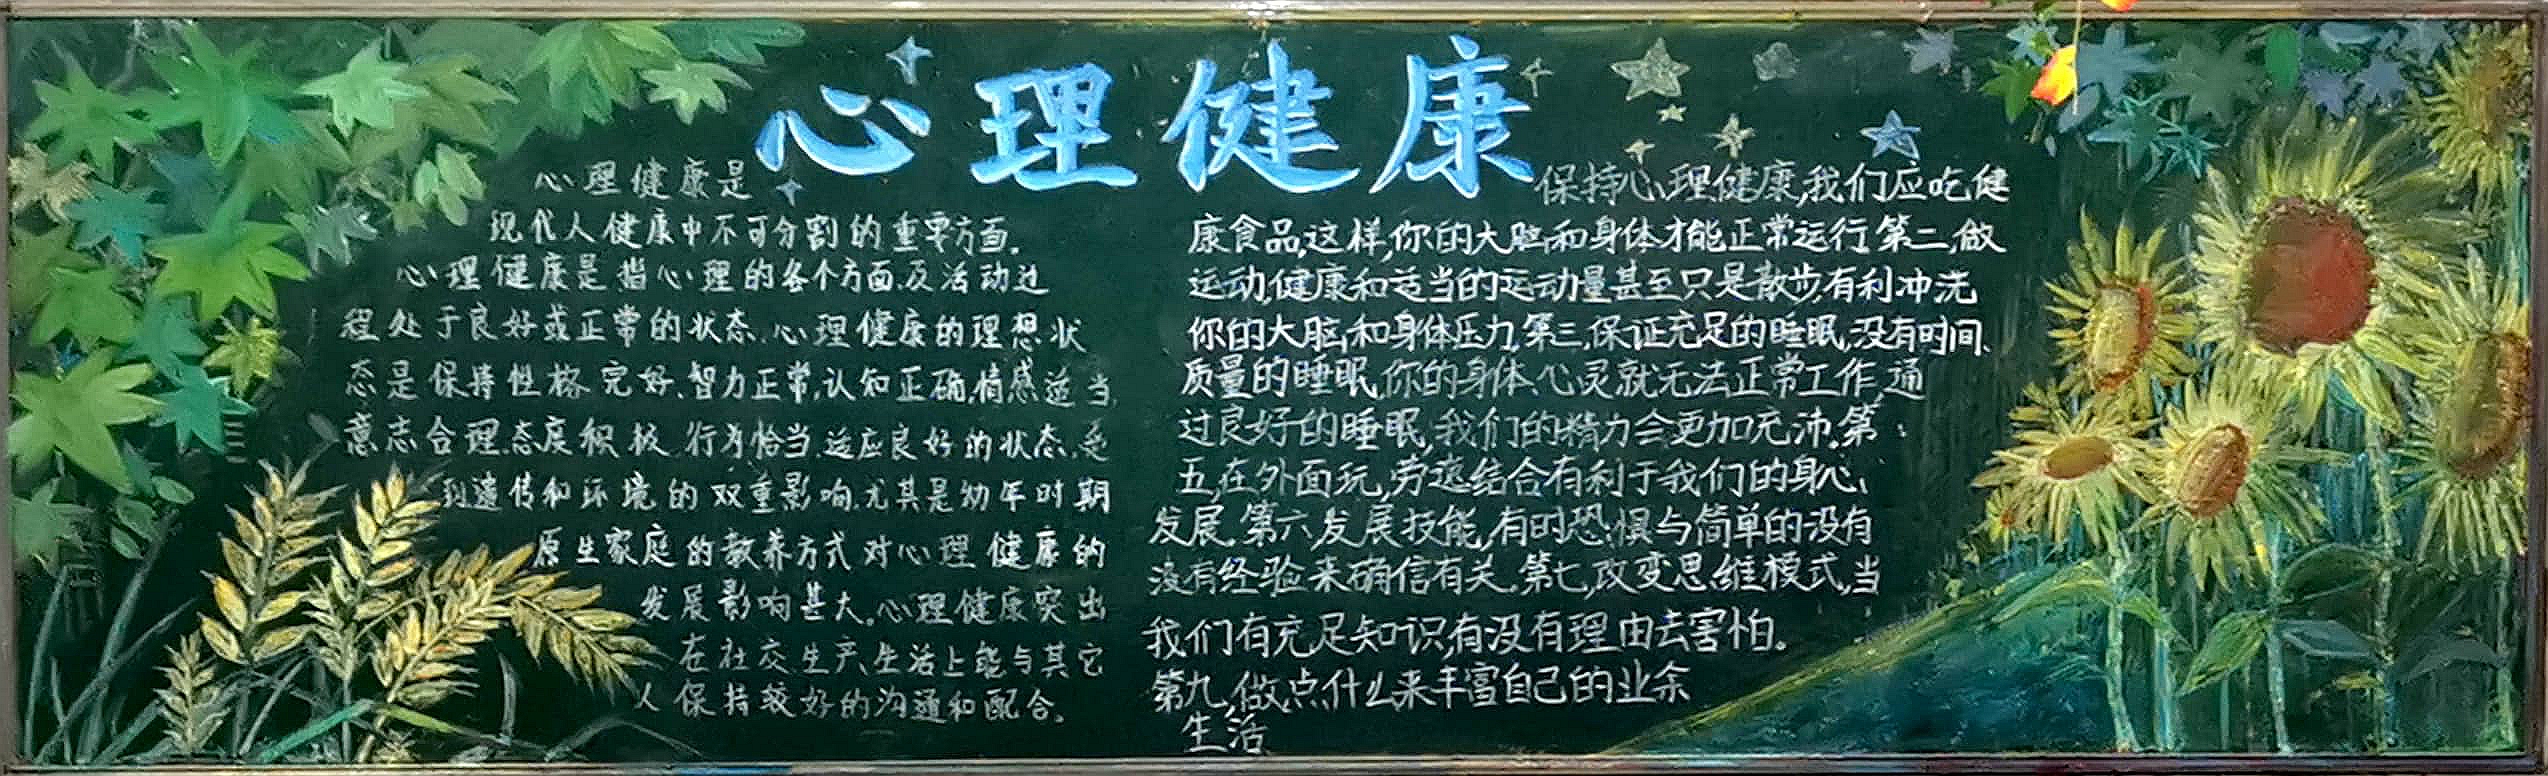 心理健康
心理健康是
现代人健康中不可分割的重要方面。
心理健康是指心理的各个方面及活动过
程处于良好或正常的状态.心理健康的理想状
态是保持性格完好、智力正常,认知正确,情感适当,
意志合理.态度积极.行为恰当.适应良好的状态.受
到遗传和环境的双重影响.尤其是幼年时期
原生家庭的教养方式对心理健康的
发展影响甚大。心理健康突出
在社交.生产.生活上能与其它
人保持较好的沟通和配合。
保持心理健康,我们应吃健
康食品,这样,你的大脑和身体才能正常运行.第二,做
运动,健康和适当的运动量甚至只是散步,有利冲洗
你的大脑,和身体压力,第三,保证充足的睡眠,没有时间、
质量的睡眠,你的身体、心灵就无法正常工作,通
过良好的睡眠,我们的精力会更加充沛。第
五,在外面玩,劳逸结合有利于我们的身心
发展.第六,发展技能,有时恐惧与简单的没有
没有经验来确信有关.第七,改变思维模式,当
我们有充足知识,有没有理由去害怕。
第九,做点什么来丰富自己的业余
生活